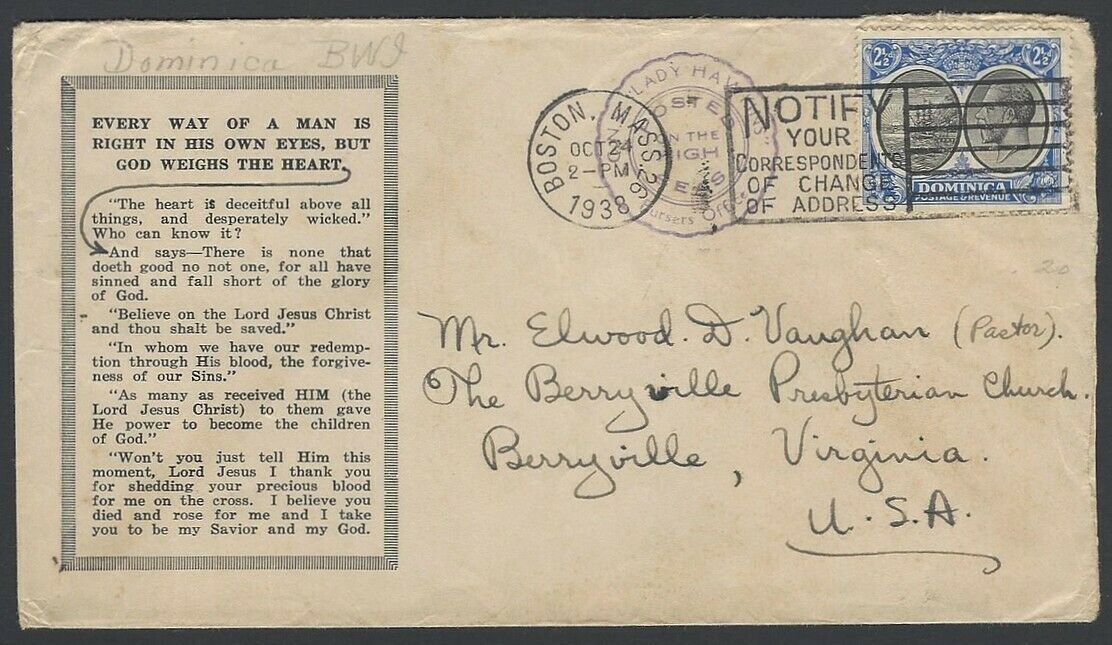 Dominica BWI
EVERY WAY OF A MAN IS
RIGHT IN HIS OWN EYES, BUT
GOD WEIGHS THE HEART,
"The heart is deceitful above all
things, and desperately wicked."
Who can know it?
And says—There is none that
doeth good no not one, for all have
sinned and fall short of the glory
of God.
"Believe on the Lord Jesus Christ
and thou shalt be saved."
"In whom we have our redemp-
tion through His blood, the forgive-
ness of our Sins."
"As many as received HIM (the
Lord Jesus Christ) to them gave
He power to become the children
of God."
"Won't you just tell Him this
moment, Lord Jesus I thank you
for shedding your precious blood
for me on the cross. I believe you
died and rose for me and I take
you to be my Savior and my God.
BOSTON, MASS. 26
OCT 24
2-PM
1938
LADY HAW
POSTED
ON THE
HIGH
NOTIFY
YOUR
CORRESPONDENTS
OF CHANGE
OF ADDRESS
2½ 2½
DOMINICA
POSTAGE & REVENUE
20
Mr. Elwood. D. Vaughan (Pastor).
The Berryville Presbyterian Church.
Berryville, Virginia.
U.S.A.